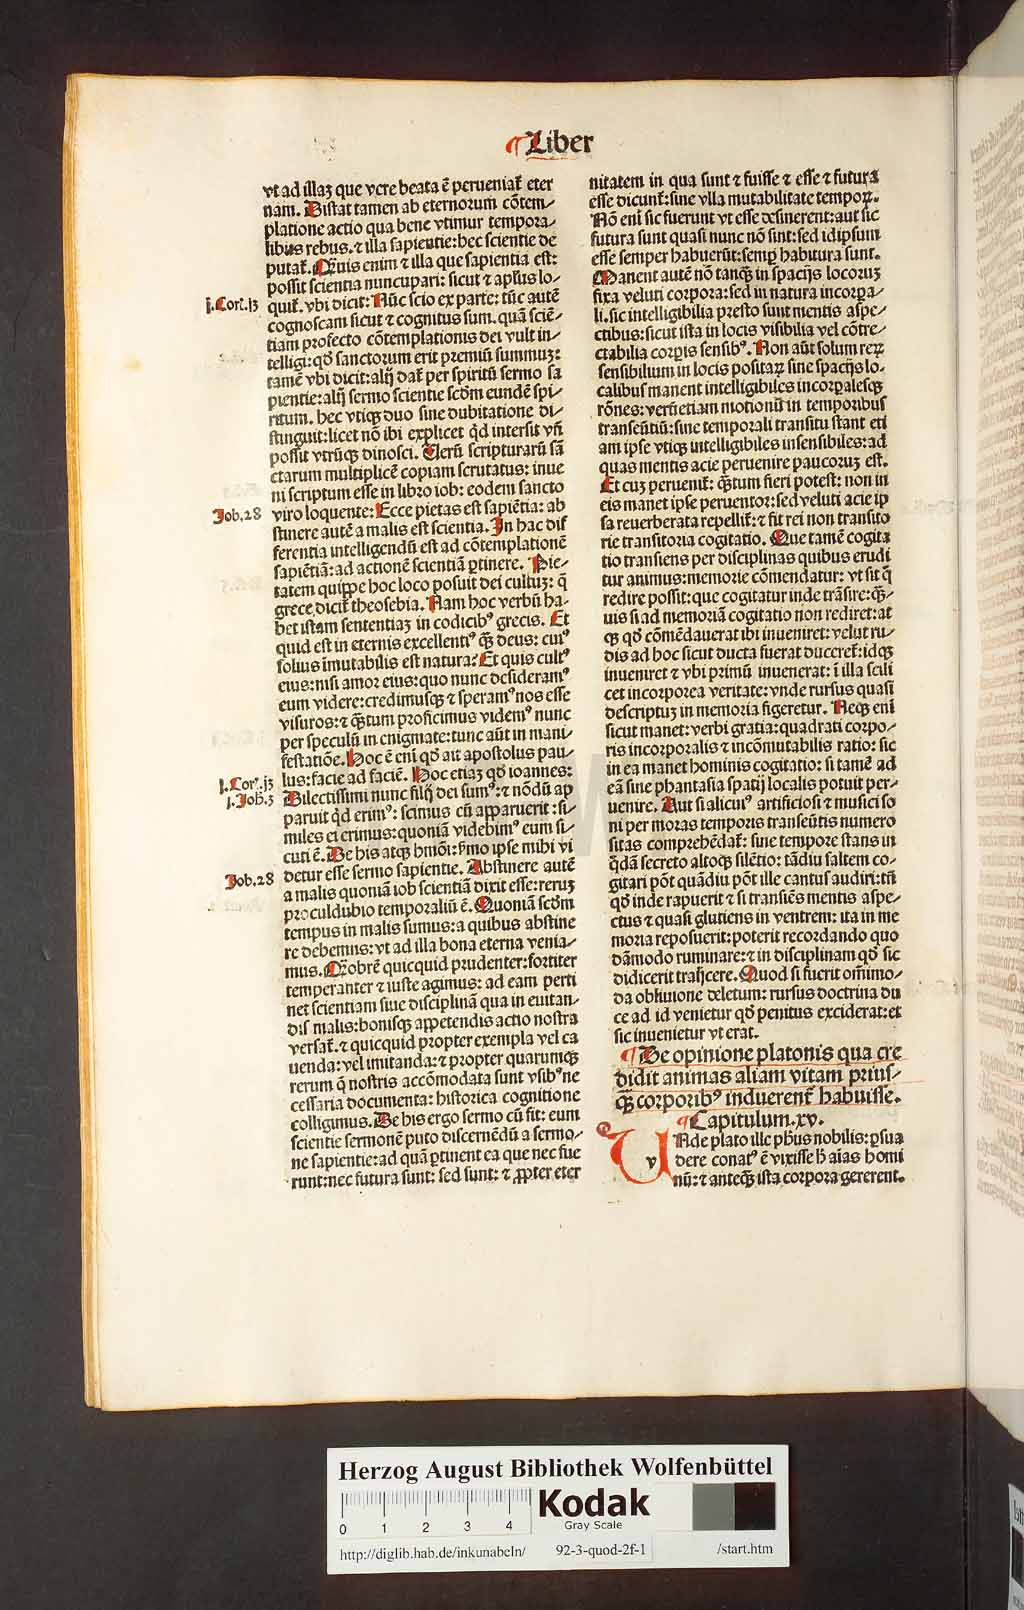 ¶Liber
vt ad illaʒ que vere beata ē perueniat᷑ eter
nam. Distat tamen ab eternorum cōtem⸗
platione actio qua bene vtimur tempora⸗
libus rebus. ⁊ illa sapientie: hec scientie de
putat᷑. Qꝫuis enim ⁊ illa que sapientia est:
possit scientia nuncupari: sicut ⁊ apl̄us lo⸗
j.Cor.ꝛ.13
quit᷑. vbi dicit: Nūc scio ex parte: tūc autē
cognoscam sicut ⁊ cognitus sum. quā sciē⸗
tiam profecto cōtemplationis dei vult in⸗
telligi: qd̄ sanctorum erit premiū summuʒ:
tamē vbi dicit: alij dat᷑ per spiritū sermo sa
pientie: alij sermo scientie scd̄m eundē spi⸗
ritum. hec vtiqꝫ duo sine dubitatione di⸗
stinguit: licet nō ibi explicet qd̄ intersit vn̄
possit vtrūqꝫ dinosci. Uerū scripturarū sā
ctarum multiplicē copiam scrutatus: inue
ni scriptum esse in libro iob: eodem sancto
Job.28
viro loquente: Ecce pietas est sapiētia: ab
stinere autē a malis est scientia. In hac dif
ferentia intelligendū est ad cōtemplationē
sapiētiā: ad actionē scientiā ꝑtinere. Pie⸗
tatem quippe hoc loco posuit dei cultuʒ: q̄
grece dicit᷑ theosebia. Nam hoc verbū ha⸗
bet istam sententiaʒ in codicibꝰ grecis. Et
quid est in eternis excellentiꝰ qꝫ̄ deus: cuiꝰ
solius īmutabilis est natura? Et quis cultꝰ
eius: nisi amor eius: quo nunc desideramꝰ
eum videre: credimusqꝫ ⁊ speramꝰ nos esse
visuros: ⁊ qꝫ̄tum proficimus videmꝰ nunc
per speculū in enigmate: tunc aūt in mani
festatiōe. Hoc ē eni qd̄ ait apostolus pau⸗
j.Cor.ꝛ.13
lus: facie ad faciē. Hoc etiaʒ qd̄ ioannes:
j.Joh.3
Dilectissimi nunc filij dei sumꝰ: ⁊ nōdū ap
paruit qd̄ erimꝰ: scimus cū apparuerit: si⸗
miles ei erimus: quoniā videbimꝰ eum si⸗
cuti ē. De his atqꝫ hmōi: ṗmo ipse mihi vi
Job.28
detur esse sermo sapientie. Abstinere autē
a malis quoniā iob scientiā dixit esse: reruʒ
proculdubio temporaliū ē. Quoniā scd̄m
tempus in malis sumus: a quibus abstine
re debemus: vt ad illa bona eterna venia⸗
mus. Qꝫobrē quicquid prudenter: fortiter
temperanter ⁊ iuste agimus: ad eam perti
net scientiam siue disciplinā qua in euitan⸗
dis malis: bonisqꝫ appetendis actio nostra
versat᷑. ⁊ quicquid propter exempla vel ca
uenda: vel imitanda: ⁊ propter quarumqꝫ
rerum q̄ nostris accōmodata sunt vsibꝰ ne
cessaria documenta: historica cognitione
colligimus. De his ergo sermo cū fit: eum
scientie sermonē puto discernēdū a sermo⸗
ne sapientie: ad quā ꝑtinent ea que nec fue
runt: nec futura sunt: sed sunt: ⁊ ꝓpter eter
nitatem in qua sunt ⁊ fuisse ⁊ esse ⁊ futura
esse dicunt᷑: sine vlla mutabilitate tempoꝝ.
Nō eni sic fuerunt vt esse desinerent: aut sic
futura sunt quasi nunc nō sint: sed idipsum
esse semper habuerūt: semꝑ habitura sunt.
Manent autē nō tanqꝫ in spacijs locoruʒ
fixa veluti corpora: sed in natura incorpa⸗
li. sic intelligibilia presto sunt mentis aspe⸗
ctibus: sicut ista in locis visibilia vel cōtre⸗
ctabilia corꝑis sensibꝰ. Non aūt solum reꝝ
sensibilium in locis positaꝝ sine spacijs lo⸗
calibus manent intelligibiles incorpalesqꝫ
rōnes: verūetiam motionū in temporibus
transeūtiū: sine temporali transitu stant eti
am ipse vtiqꝫ intelligibiles insensibiles: ad
quas mentis acie peruenire paucoruʒ est.
Et cuʒ peruenit᷑: qꝫ̄tum fieri potest: non in
eis manet ipse peruentor: sed veluti acie ip
sa reuerberata repellit᷑: ⁊ fit rei non transito
rie transitoria cogitatio. Que tamē cogita
tio transiens per disciplinas quibus erudi
tur animus: memorie cōmendatur: vt sit q̄
redire possit: que cogitatur inde trāsire: qꝫ̄⸗
uis si ad memoriā cogitatio non rediret: at
qꝫ qd̄ cōmēdauerat ibi inueniret: velut ru⸗
dis ad hoc sicut ducta fuerat duceret᷑: idqꝫ
inueniret ⁊ vbi primū inuenerat: ī illa scili
cet incorporea veritate: vnde rursus quasi
descriptuʒ in memoria figeretur. Neqꝫ eni
sicut manet: verbi gratia: quadrati corpo⸗
ris incorporalis ⁊ incōmutabilis ratio: sic
in ea manet hominis cogitatio: si tamē ad
eā sine phantasia spatij localis potuit per⸗
uenire. Aut si alicuiꝰ artificiosi ⁊ musici so
ni per moras temporis transeūtis numero
sitas comprehēdat᷑: sine tempore stans in
q̄dā secreto altoqꝫ silētio: tādiu saltem co⸗
gitari pōt quādiu pōt ille cantus audiri: tn̄
qd̄ inde rapuerit ⁊ si transiēs mentis aspe⸗
ctus ⁊ quasi glutiens in ventrem: ita in me
moria reposuerit: poterit recordando quo
dāmodo ruminare: ⁊ in disciplinam qd̄ sic
didicerit traijcere. Quod si fuerit om̄imo⸗
da obliuione deletum: rursus doctrina du
ce ad id venietur qd̄ penitus exciderat: et
sic inuenietur vt erat.
¶De opinione platonis qua cre
didit animas aliam vitam prius⸗
qꝫ̄ corporibꝰ induerent᷑ habuisse.
¶Capitulum.xv.
UNde plato ille ph̄us nobilis: ꝑsua
dere conatꝰ ē vixisse h̄ aīas homi
nū: ⁊ anteqꝫ ista corpora gererent.
Herzog August Bibliothek Wolfenbüttel
0 1 2 3 4
Kodak
Gray Scale
http://diglib.hab.de/inkunabeln/ 92-3-quod-2f-1 /start.htm